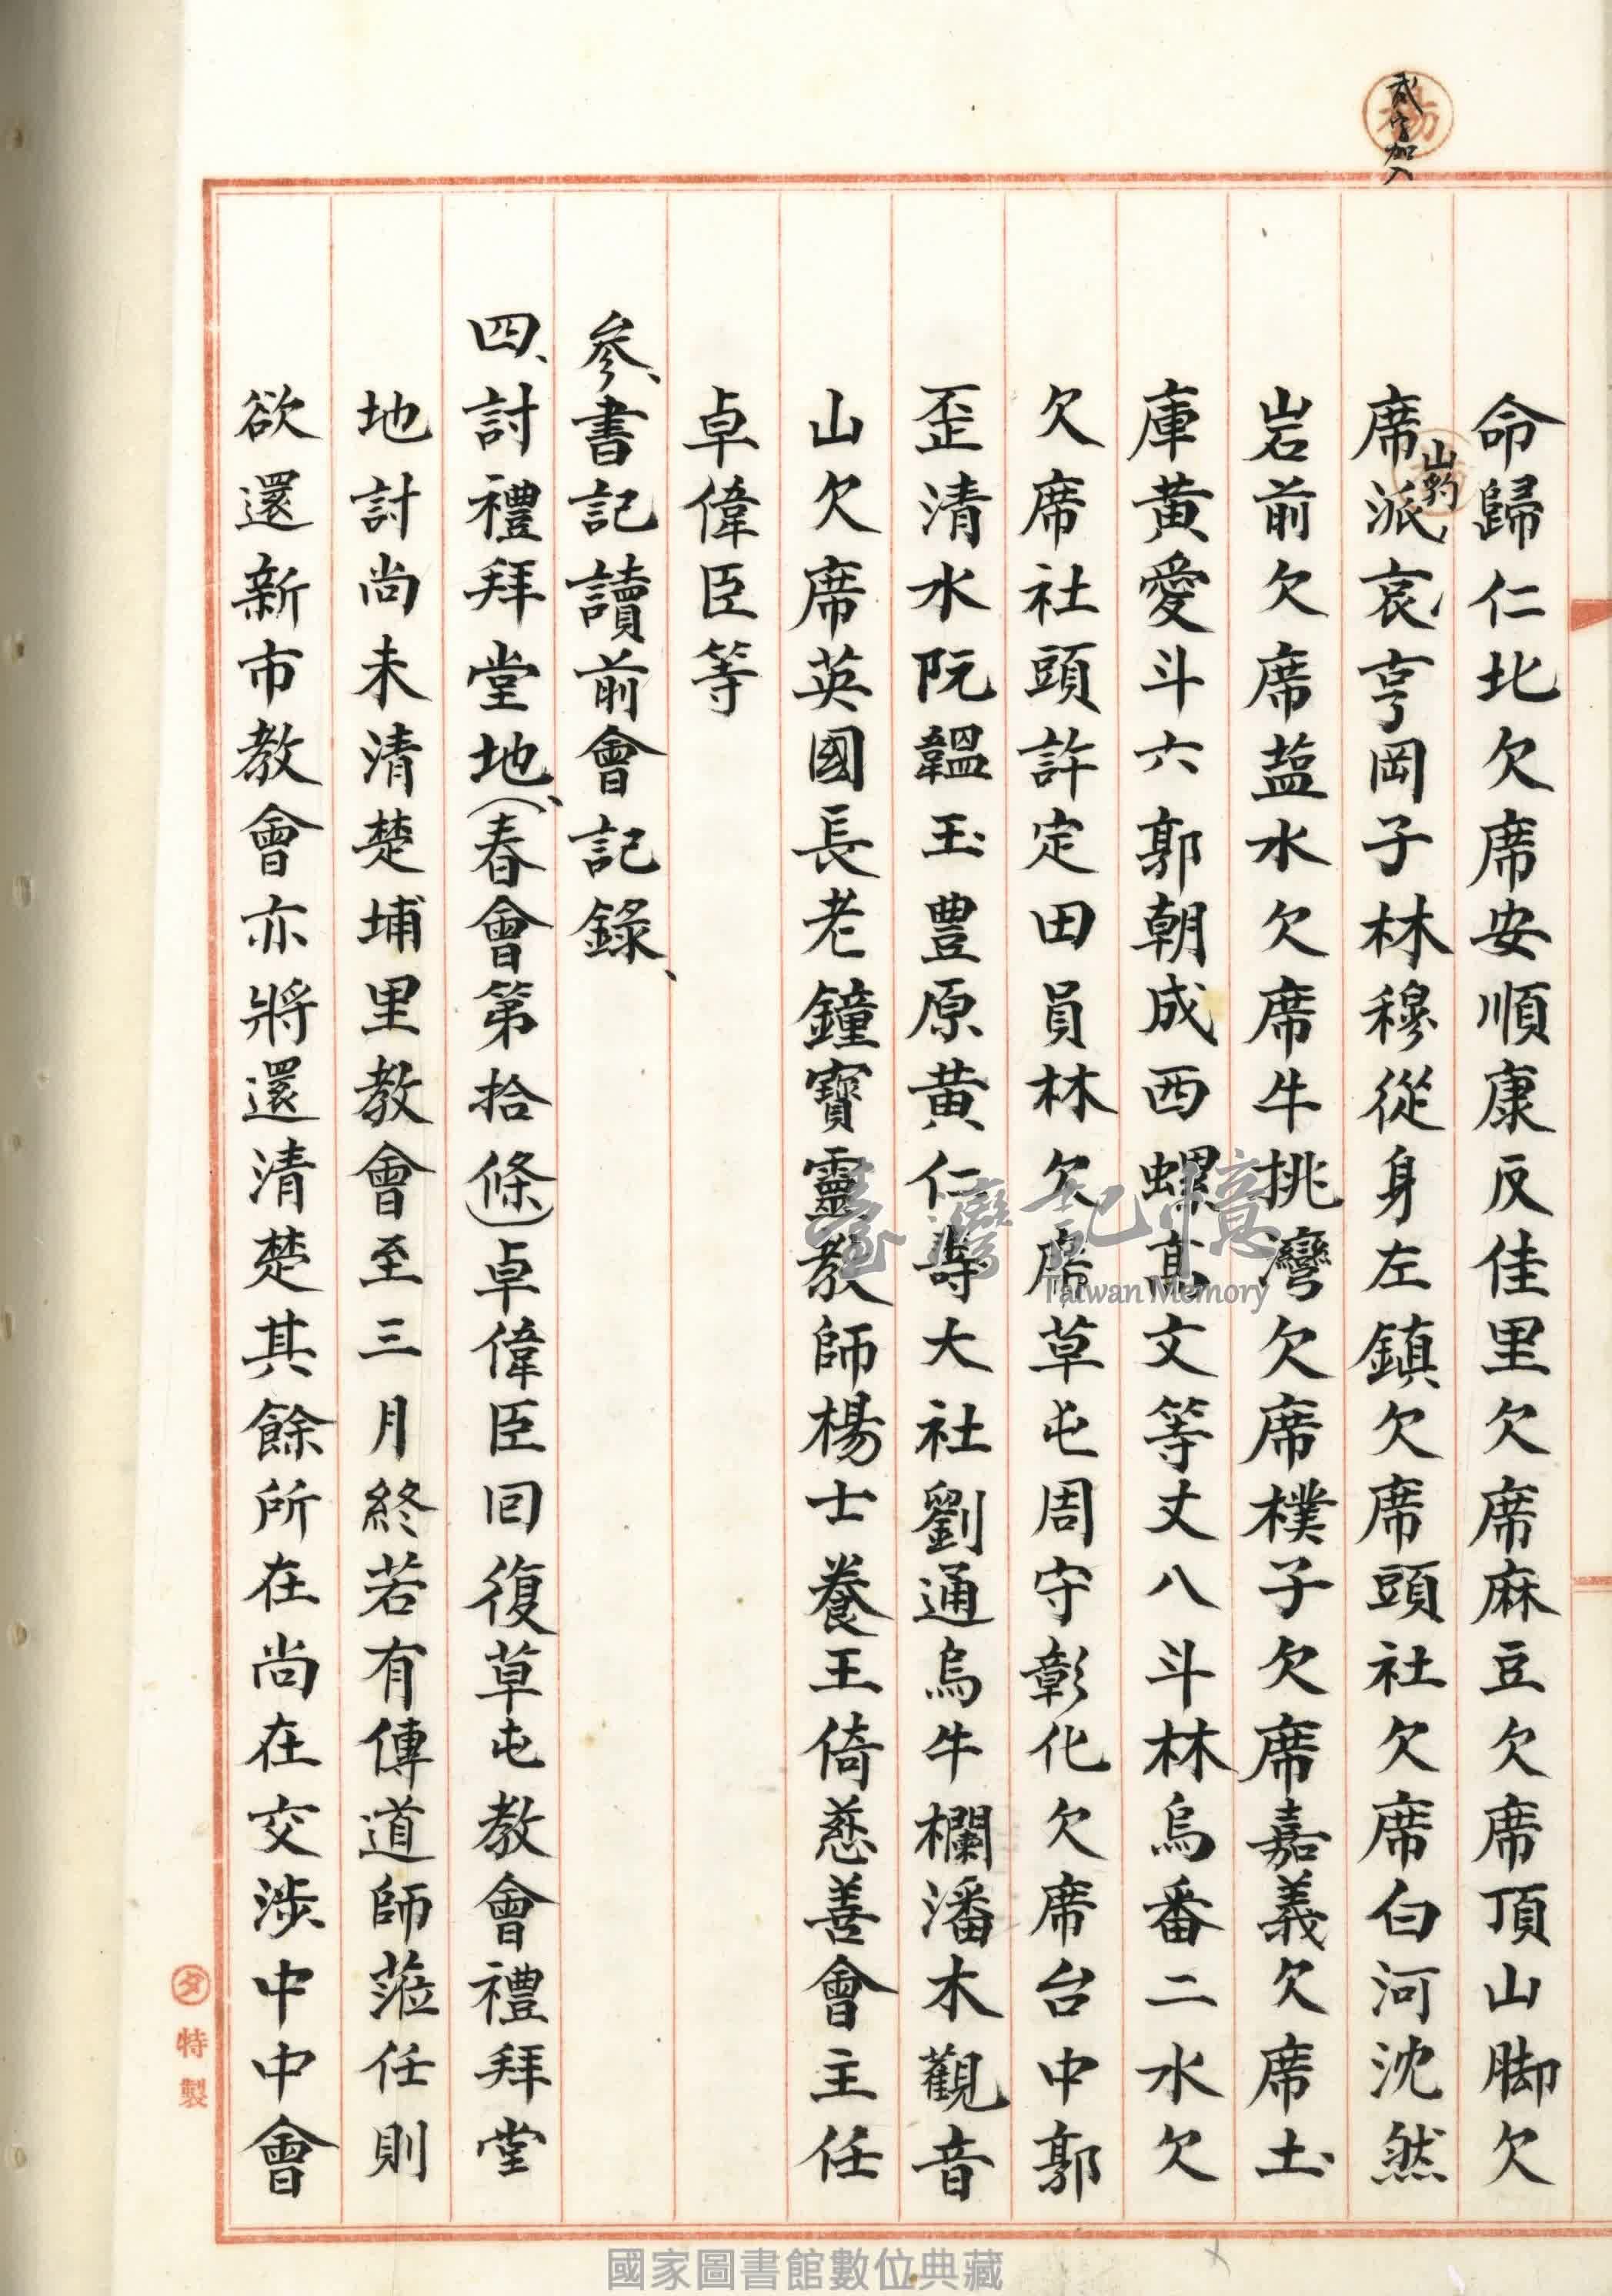 貳字加入
命歸仁北欠席安順康反佳里欠席麻豆欠席頂山脚欠
席派哀亨岡子林穆從身左鎮欠席頭社欠席白河沈然
山豹
岩前欠席塩水欠席牛挑灣欠席樸子欠席嘉義欠席土
庫黃愛斗六郭朝成西螺高文等丈八斗林烏番二水欠
欠席社頭許定田員林欠席草屯周守彰化欠席台中郭
歪清水阮韞玉豐原黃仁壽大社劉通烏牛欄潘木觀音
山欠席英國長老鐘寶靈教師楊士養王倚慈善會主任
卓偉臣等
參、書記讀前會記錄、
四、討禮拜堂地、(春會第拾條)卓偉臣回復草屯教會禮拜堂
地討尚未清楚埔里教會至三月終若有傳道師蒞任則
欲還新市教會亦將還清楚其餘所在尚在交涉中中會
特製
臺灣記憶
Taiwan Memory
國家圖書館數位典藏